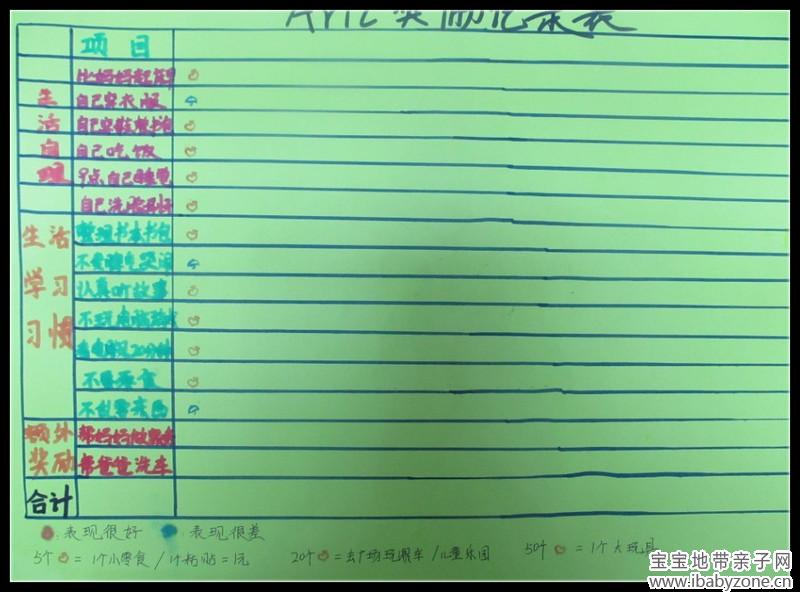 奖励记录表
项目
生活自理
自己穿衣服
自己吃饭
9点自己睡觉
生活学习习惯
整理书本书包
不爱发脾气哭闹
认真听故事
不玩电脑游戏
不要零食
不乱要东西
额外奖励
帮妈妈做家务
帮爸爸洗车
合计
:表现很好 :表现很差
5个 = 1个小零食/1个粘贴=1元 20个 = 去广场玩滑车/儿童乐园 50个 = 1个大玩具
宝宝地带亲子网
www.ibabyzone.cn